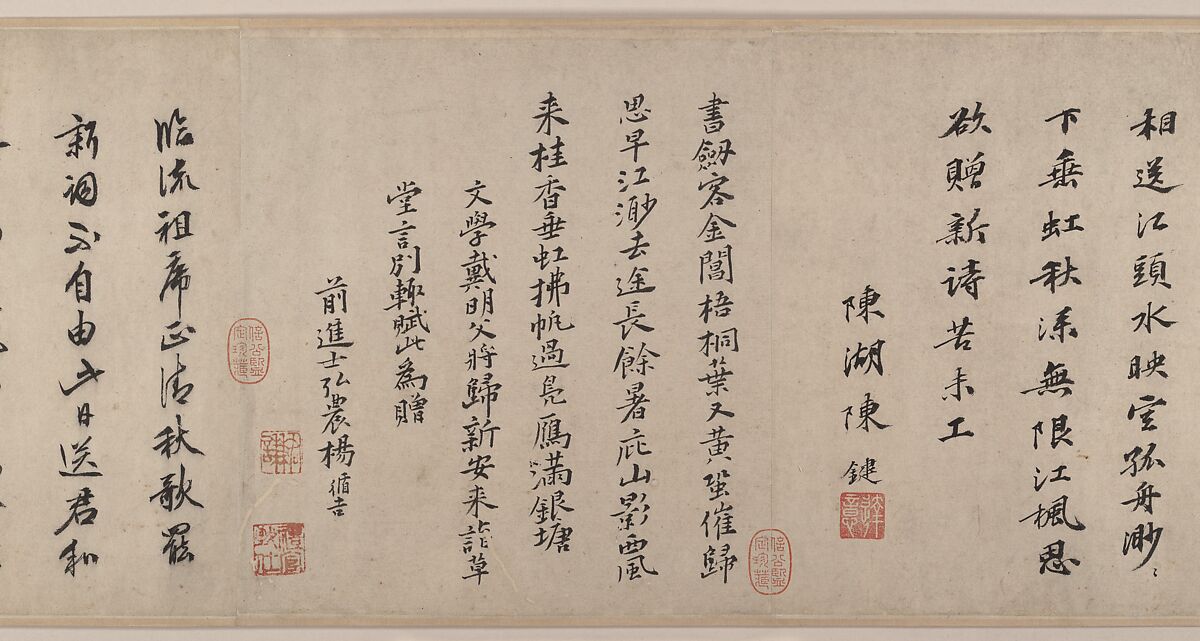 相送江頭水映空孤舟渺〻
下垂虹秋深無限江楓思
欲贈新詩苦未工
陳湖陳鍵
書劔客金閶梧桐葉又黄蛩催歸
思早江渺去途長餘暑庇山影西風
来桂香垂虹拂帆過鳧鴈滿銀塘
文學戴明父將歸新安来詣草
堂言別輙賦此為贈
前進士弘農楊循吉
臨流祖席正清秋歌罷
新詞不自由此日送君和